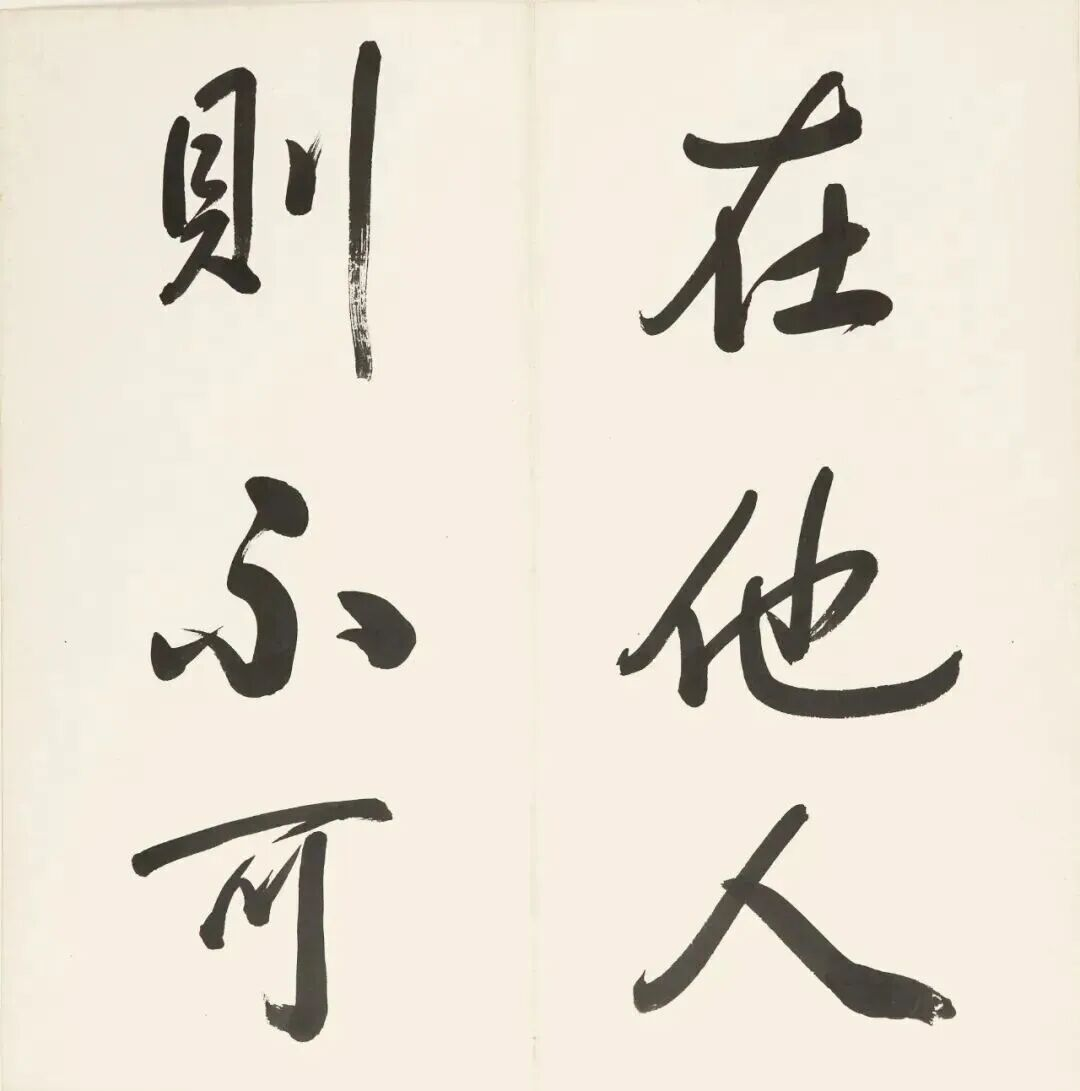 在他人
則不可